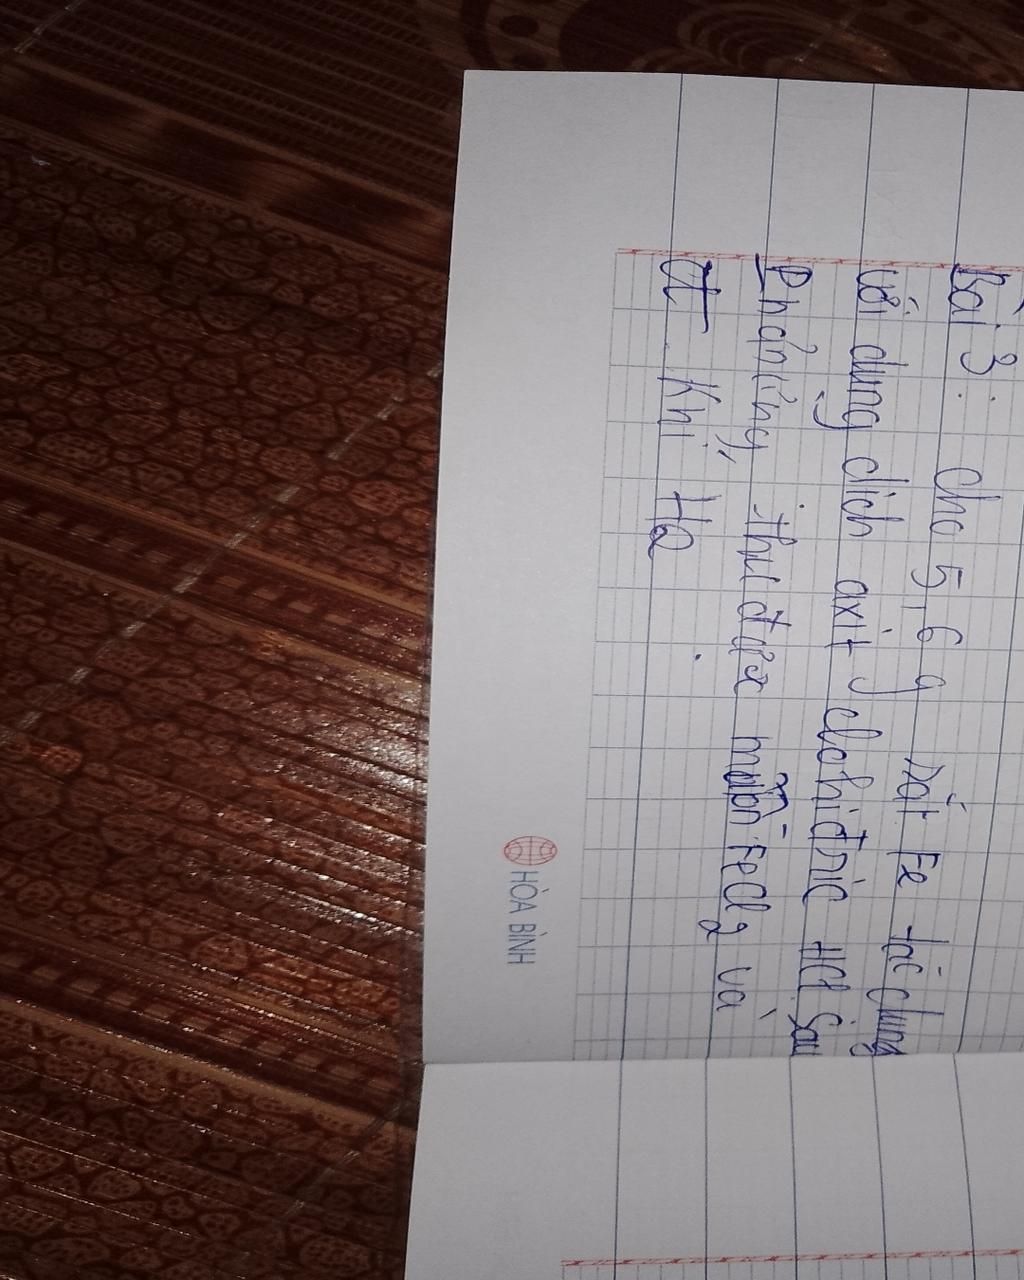 Bài 3: cho 5,6 g sắt Fe tác dụng
với dung dịch axit clohiđric HCl Sau
Phản ứng, thu được muối FeCl2 và
khí H2
HÒA BÌNH